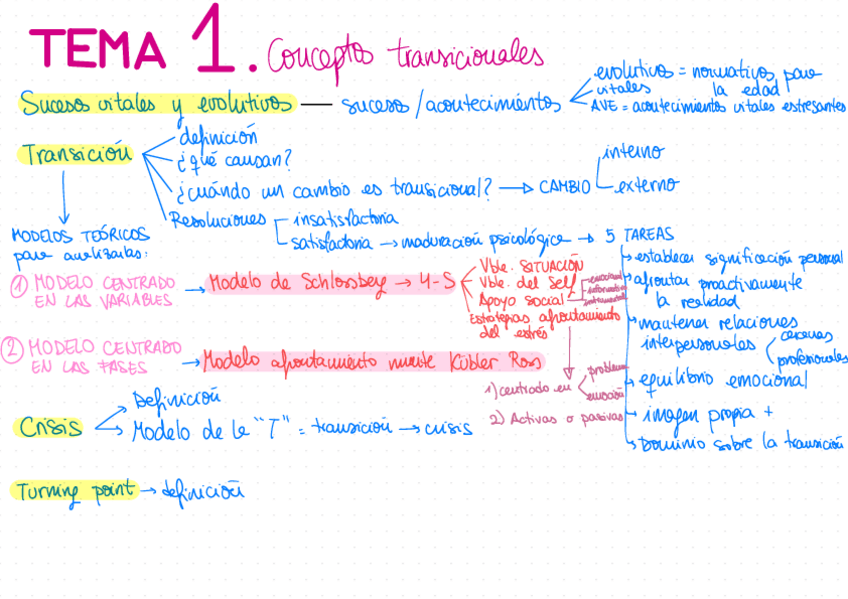 TEMA 1. Conceptos transicionales
Sucesos vitales y evolutivos — sucesos / acontecimientos
evolutivos = normativos para la edad
vitales
AVE = acontecimientos vitales estresantes
Transición
definición
¿qué causan?
¿cuándo un cambio es transicional? → CAMBIO
interno
externo
Resoluciones
insatisfactoria
satisfactoria → maduración psicológica → 5 TAREAS
establecer significación personal
afrontar proactivamente
la realidad
mantener relaciones
interpersonales
cercanas
profesionales
equilibrio emocional
imagen propia +
Dominio sobre la transición
MODELOS TEÓRICOS
para analizarlas:
① MODELO CENTRADO
EN LAS VARIABLES
→ Modelo de Schlossberg → 4-S
Vble. SITUACIÓN
Vble. del Self
Apoyo social
emocional
informativo
instrumental
Estrategias afrontamiento
del estrés
1) centrado en
problema
emoción
2) Activas o pasivas
② MODELO CENTRADO
EN LAS FASES
→ Modelo afrontamiento muerte Kübler Ross
Crisis
Definición
Modelo de la "T" = transición → crisis
Turning point → definición